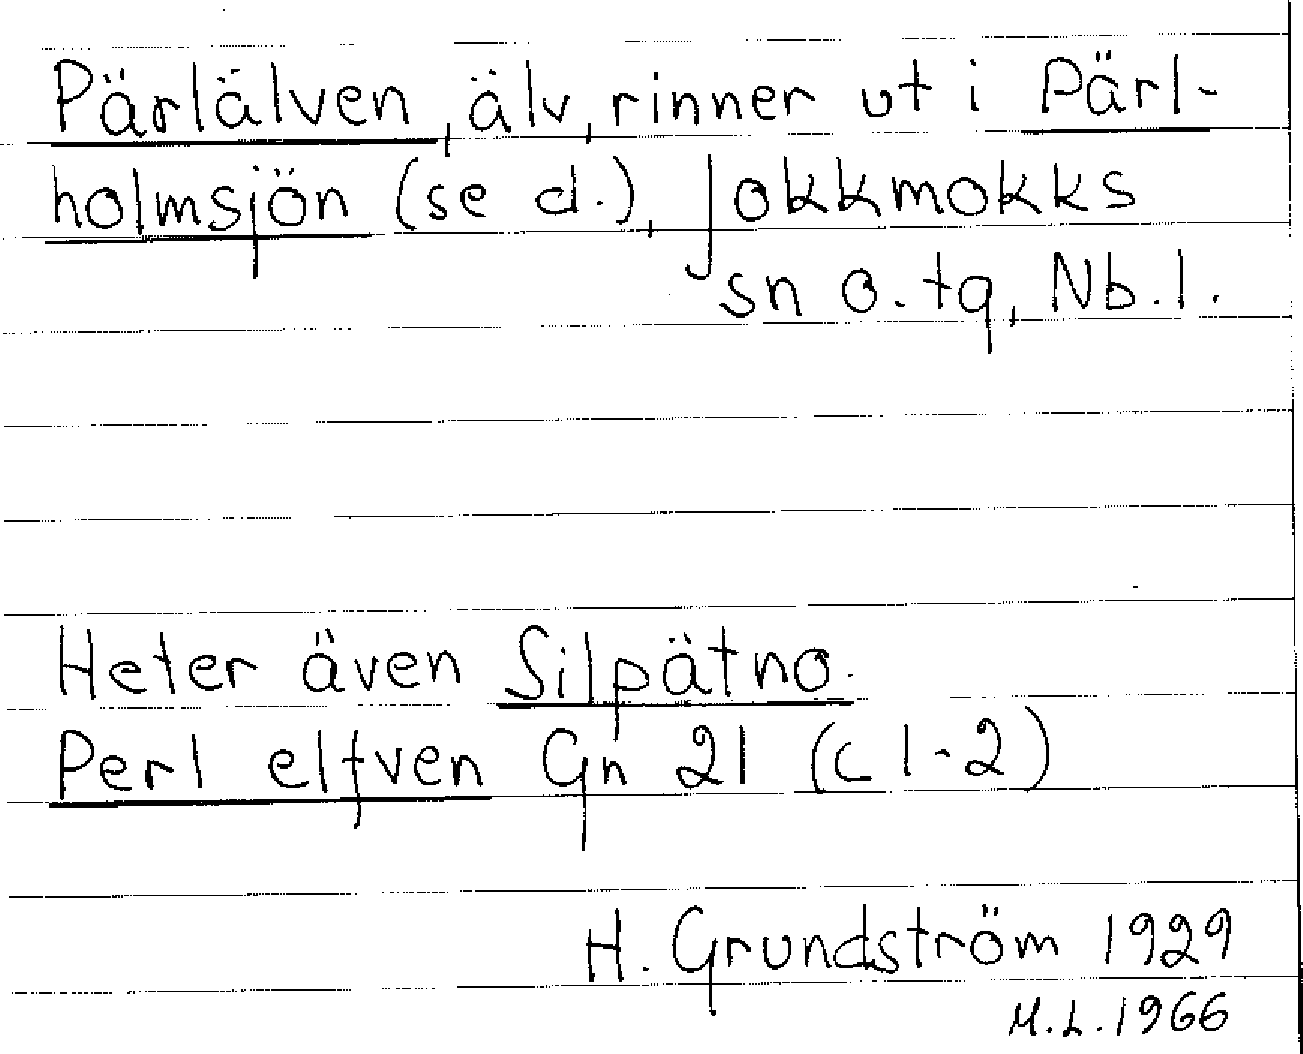 Pärlälven, älv, rinner ut i Pärl-
holmsjön (se d.), Jokkmokks
sn o. tg, Nb. l.
Heter även Silpätno.
Perl elfven Gn 21 (c 1-2)
H. Grundström 1929
M.L. 1966